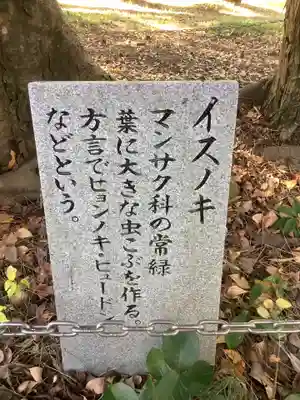 イスノキ
マンサク科の常緑
葉に大きな虫こぶを作る。
方言でヒョンノキ・ヒュード
などという。